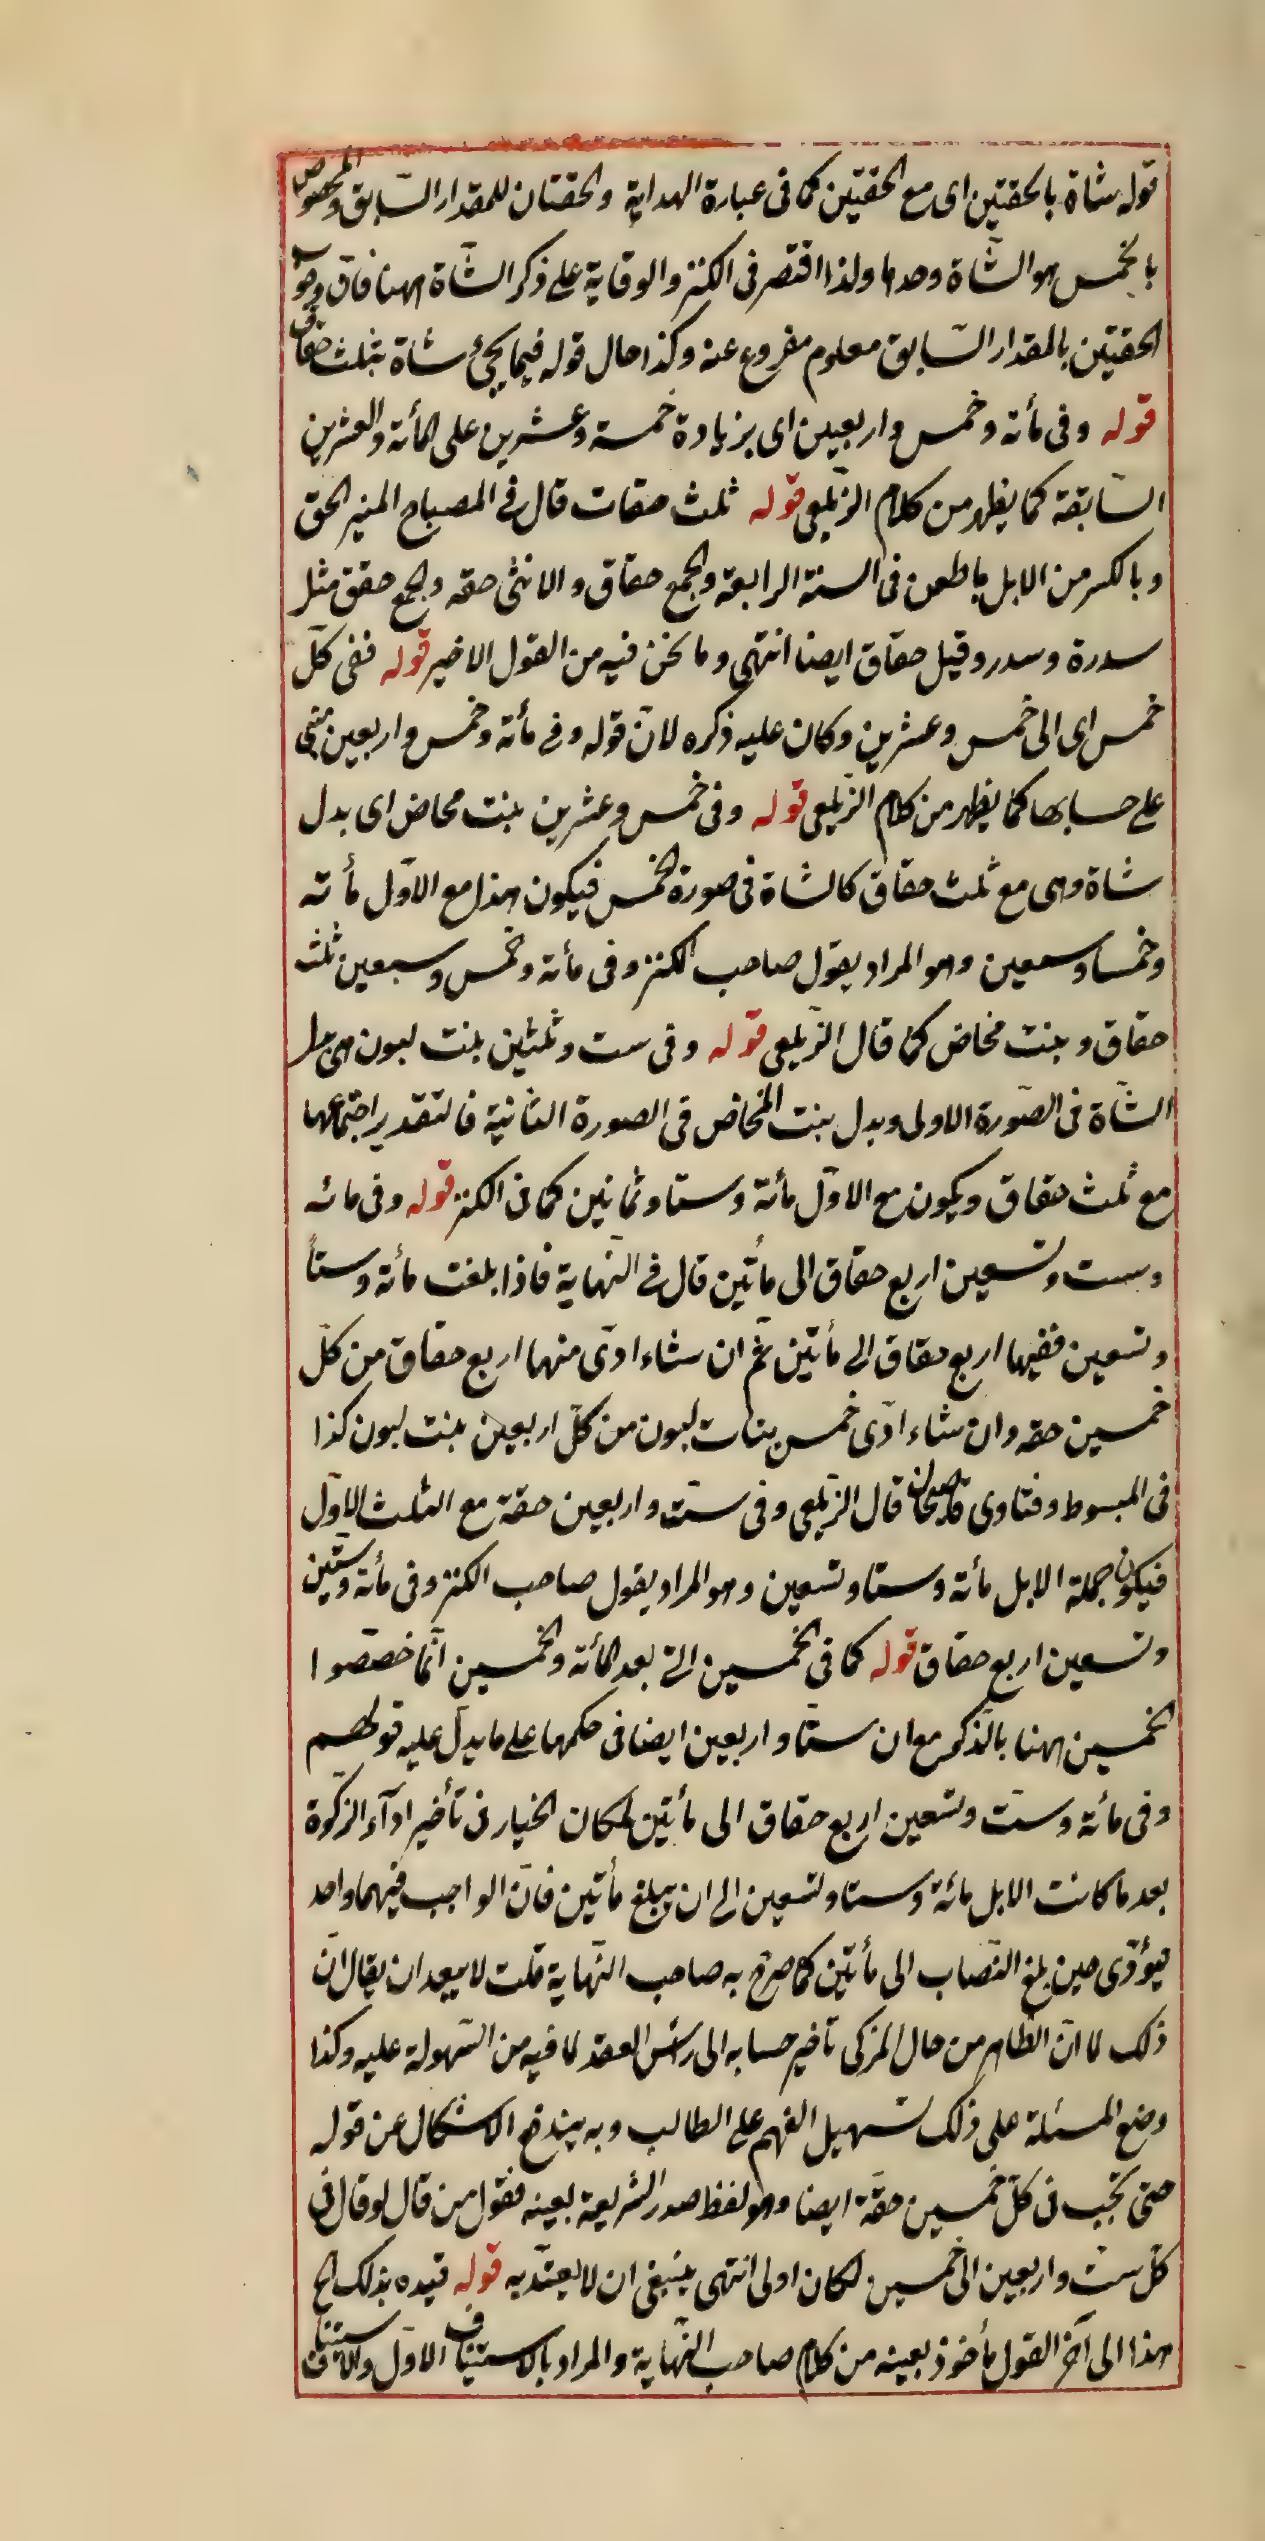 قوله شاة بالحقتين اى مع الحقتين كما فى عبارة الهداية والحقتان للمقدار السّابق والمخصوص
بالخمس هو الشّاة وحدها ولذا اقتصر فى الكنز والوقاية على ذكر الشّاة ههنا فانّ وجوب
الحقتين بالمقدار السّابق معلوم مفروغ عنه وكذا حال قوله فيما يجئ شاة بثلث حقاق
قوله وفى مأئة وخمس واربعين اى بزيادة خمسة وعشرين على المأئة والعشرين
السّابقة كما يظهر من كلام الزّيلعى قوله ثلث حقات قال فى المصباح المنير الحق
وبالكسر من الابل ما طعن فى السنة الرابعة والجمع حقاق والانثى حقه والجمع حقق مثل
سدرة وسدر وقيل حقاق ايضا انتهى وما نحن فيه من القول الاخير قوله ففى كلّ
خمس اى الى خمس وعشرين وكان عليه ذكره لانّ قوله وفى مأئة وخمس واربعين مبنى
على حسابها كما يظهر من كلام الزّيلعى قوله وفى خمس وعشرين بنت مخاض اى بدل
شاة وهى مع ثلث حقاق كالشاة فى صورة الخمس فيكون هذا مع الاوّل مأئة
وخمسا وسبعين وهو المراد بقول صاحب الكنز وفى مأئة وخمس وسبعين ثلث
حقاق وبنت مخاض كما قال الزّيلعى قوله وفى ست وثلثين بنت لبون هى بدل
الشّاة فى الصّورة الاولى وبدل بنت المخاض فى الصورة الثانية فالتقدير اجتماعها
مع ثلث حقاق ويكون مع الاوّل مأئة وستا وثمانين كما فى الكنز قوله وفى مائه
وست وتسعين اربع حقاق الى مأتين قال فى النّهاية فاذا بلغت مأئة وستاً
وتسعين ففيها اربع حقاق الى مأتين ثمّ ان شاء ادّى منها اربع حقاق من كلّ
خمسين حقه وان شاء ادّى خمس بنات لبون من كلّ اربعين بنت لبون كذا
فى المبسوط وفتاوى قاضيخان قال الزّيلعى وفى ستّ واربعين حقة مع الثلث الاوّل
فيكون جملة الابل مأئة وستا وتسعين وهو المراد بقول صاحب الكنز وفى مأئة وستين
وتسعين اربع حقاق قوله كما فى الخمسين التى بعد المأئة والخمسين انّما خصّصوا
الخمسين ههنا بالذّكر مع ان ستّا واربعين ايضا فى حكمها على ما يدلّ عليه قولهم
وفى مائة وستّ وتسعين اربع حقاق الى مأتين لمكان الخيار فى تأخير ادآء الزكوة
بعد ما كانت الابل مائة وستا وتسعين الى ان يبلغ مأتين فانّ الواجب فيهما واحد
فيؤدّى حين بلغ النّصاب الى مأتين كما صرّح به صاحب النّهاية قلت لا يبعد ان يقال انّ
ذلك لما انّ الظاهر من حال المزكى تأخير حسابه الى رأس العقد لما فيه من السّهولة عليه وكذا
وضع المسئلة على ذلك تسهيل الفهم على الطالب وبه يندفع الاشكال عن قوله
حتى تجب فى كلّ خمسين حقّة ايضا وهو لفظ صدر الشريعة بعينه فقول من قال لو قال فى
كلّ ستّ واربعين الى خمسين لكان اولى انتهى ينبغى ان لا يعتدّ به قوله قيّده بذلك الخ
هذا الى آخر القول مأخوذ بعينه من كلام صاحب النّهاية والمراد بالاستيناف الاوّل والاستيناف